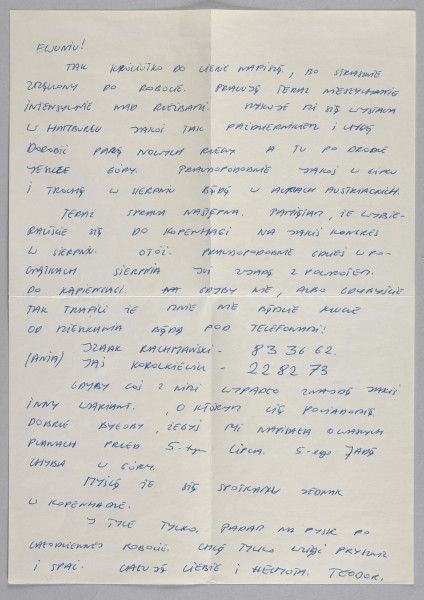 EWUNIU!
TAK KRÓCIUTKO DO CIEBIE NAPISZĘ, BO STRASZNIE
ZDĄŻONY DO ROBOCIE. PRACUJĘ TERAZ NIESŁYCHANIE
INTENSYWNIE NAD RZEŹBAMI. SZYKUJE MI SIĘ WYSTAWA
W HAMBURGU JAKOŚ TAK PAŹDZIERNIKIEM I CHCĘ
DOROBIĆ PARĘ NOWYCH RZECZY A TU PO DRODZE
JESZCZE GÓRY. PRAWDOPODOBNIE JAKOŚ W LIPCU
I TROCHĘ W SIERPNIU BĘDĘ W ALPACH AUSTRIACKICH.
TERAZ SPRAWA NASTĘPNA. PAMIĘTAM, ŻE WYBIE-
RALIŚCIE SIĘ DO KOPENHAGI NA JAKIŚ KONGRES
W SIERPNIU. OTÓŻ. PRAWDOPODOBNIE GDZIEŚ W PO-
CZĄTKACH SIERPNIA JUŻ ZJADĘ Z POWROTEM
DO KOPENHAGI. NA GDYBY NIE, ALBO GDYBYŚCIE
TAK TRAFILI ŻE MNIE NIE BĘDZIE KLUCZ
OD MIESZKANIA BĘDĘ POD TELEFONAMI!
IZAAK RACHMAŃSKI - 83 36 62.
(ANIA) JAŚ KOROLKIEWICZ - 22 82 73
GDYBY COŚ Z NIMI WYPADŁO ZNAJDĘ JAKIŚ
INNY WARIANT, O KTÓRYM CIĘ POWIADOMIĘ.
DOBRZE BYŁOBY, ŻEBYŚ MI NAPISAŁA O WASZYCH
PLANACH PRZED 5-tym LIPCA. 5-ego JADĘ
CHYBA W GÓRY.
MYŚLĘ ŻE SIĘ SPOTKAMY JEDNAK
W KOPENHADZE.
I TYLE TYLKO. PADAM NA PYSK PO
CAŁODZIENNEJ ROBOCIE. CHCĘ TYLKO WZIĄĆ PRYSZNIC
I SPAĆ. CAŁUJĘ CIEBIE I HELMUTA. TEODOR.